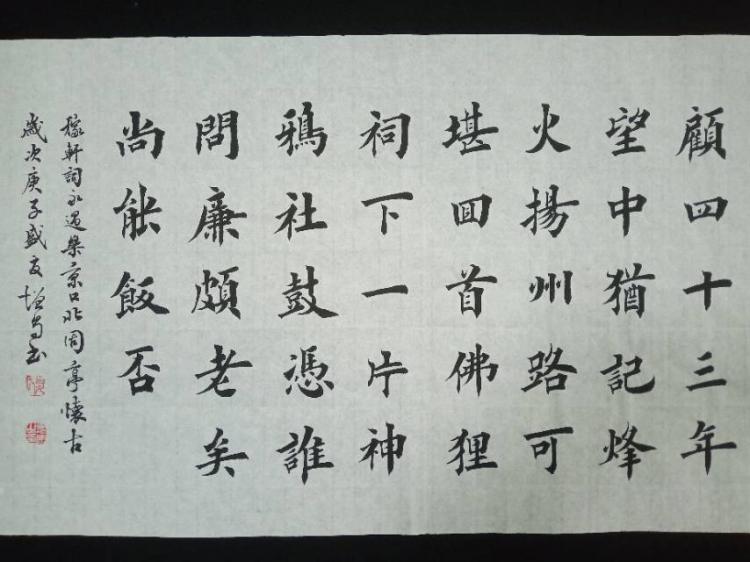 顧四十三年
望中猶記烽
火揚州路可
堪回首佛狸
祠下一片神
鴉社鼓憑誰
問廉頗老矣
尚能飯否
稼軒詞永遇樂京口北固亭懷古
歲次庚子盛夏